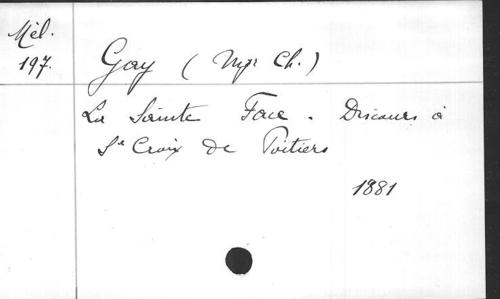 Mél.
197.
Gay (Mgr Ch.)
La Sainte Face. Discours à
Ste Croix de Poitiers
1881